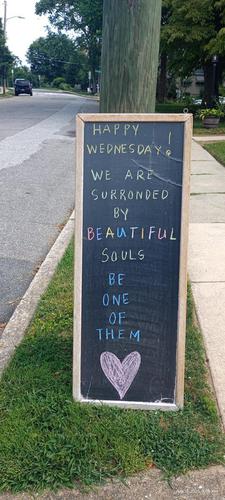 HAPPY
WEDNESDAY!
WE ARE
SURRONDED
BY
BEAUTIFUL
SOULS
BE
ONE
OF
THEM